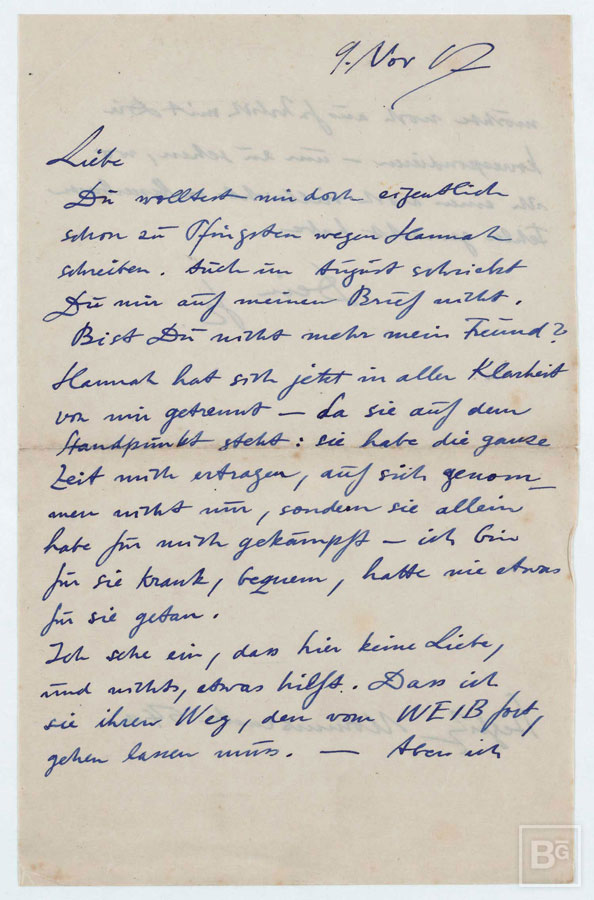 9. Nov 17
Liebe
Du wolltest mir doch eigentlich
schon zu Pfingsten wegen Hannah
schreiben. Auch im August schriebst
Du mir auf meinen Brief nicht.
Bist Du nicht mehr mein Freund?
Hannah hat sich jetzt in aller Klarheit
von mir getrennt – da sie auf dem
Standpunkt steht: sie habe die ganze
Zeit mich ertragen, auf sich genom–
men nicht nur, sondern sie allein
habe für mich gekämpft – ich bin
für sie krank, bequem, hatte nie etwas
für sie getan.
Ich sehe ein, dass hier keine Liebe,
und nichts, etwas hilft. Dass ich
sie ihren Weg, den vom WEIB fort,
gehen lassen muss. — Aber ich
BG